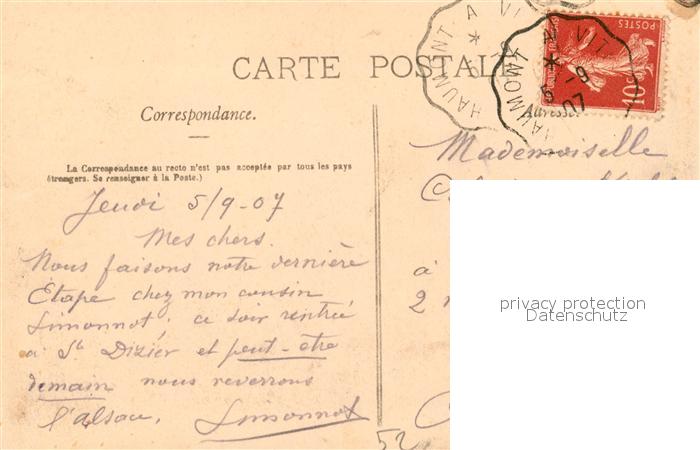 CARTE POSTALE
Correspondance.
La Correspondance au recto n'est pas acceptée par tous les pays
étrangers. Se renseigner à la Poste.)
Jeudi 5/9-07
Mes chers.
Nous faisons notre dernière
Étape chez mon cousin
Simonnot; ce soir rentrée
à St Dizier et peut-etre
demain nous reverrons
l'alsace. Simonnot
52
HAUMONT A VIT
HAUMONT A VIT
5-9
07
POSTES
10c
Adresse.
Mademoiselle
à
2
privacy protection
Datenschutz